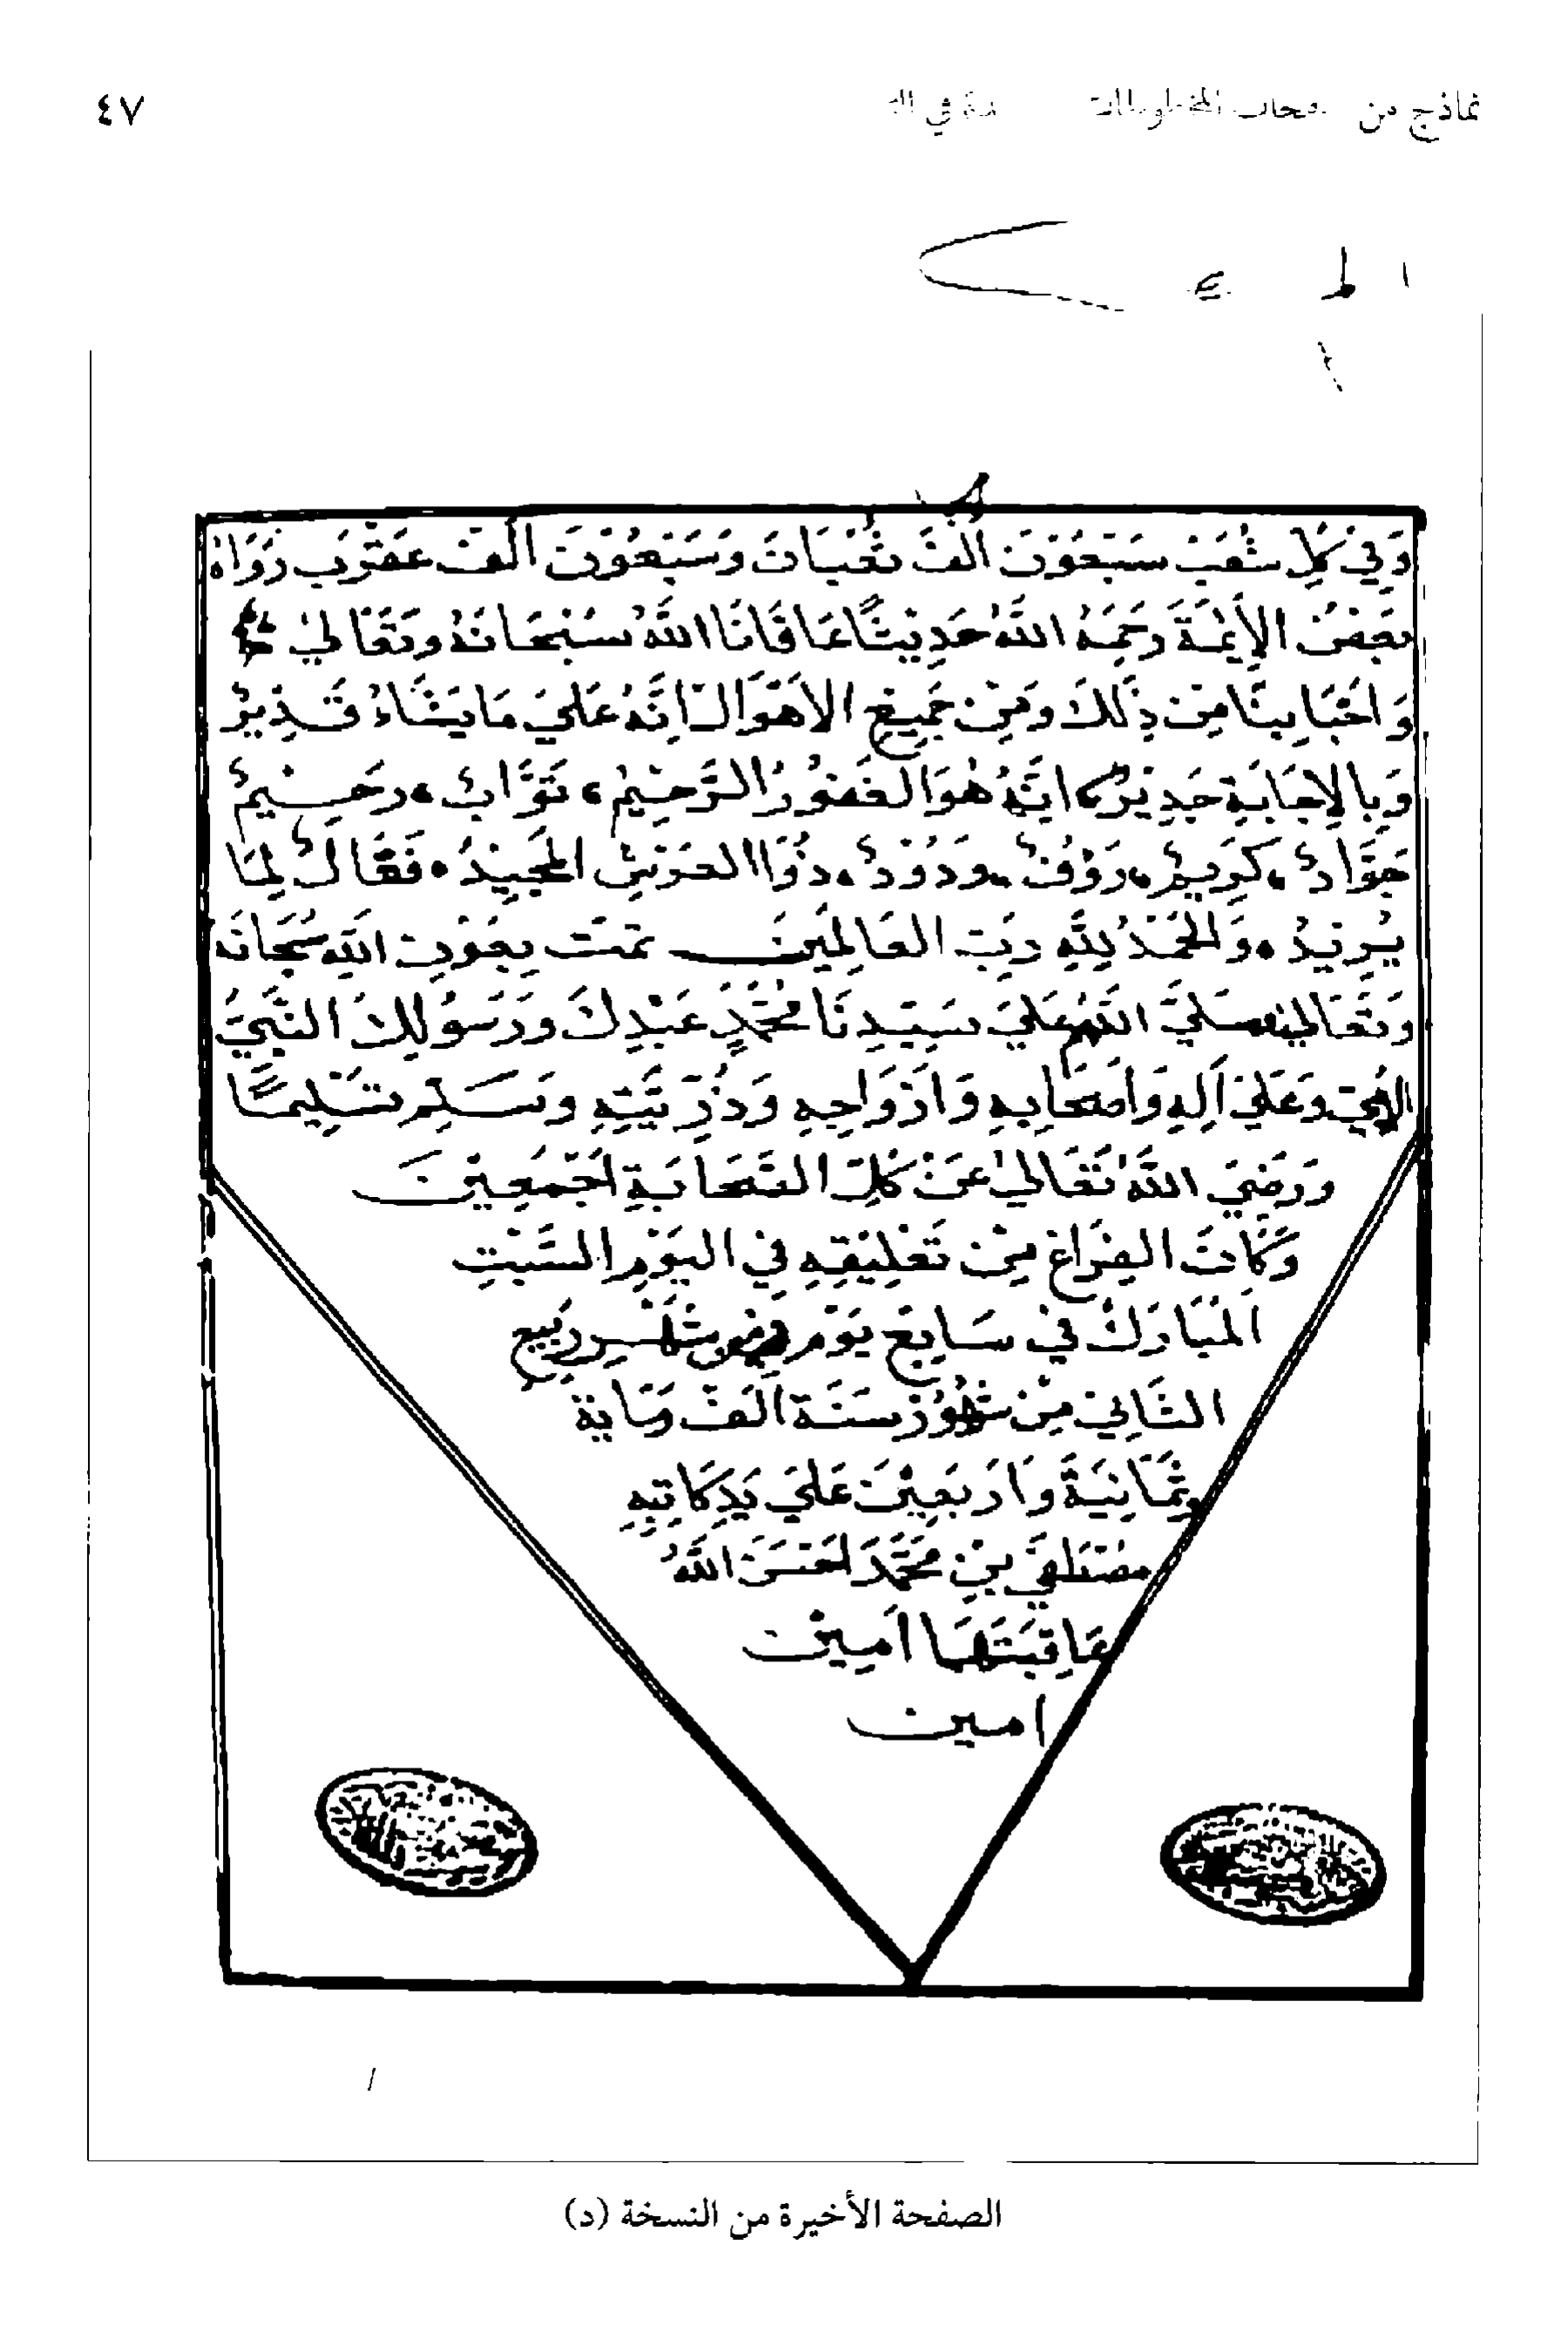 نماذج من
٤٧
وَفِي كُلِّ شُعَبٍ سَبْعُوْنَ اَلْفَ ثُعْبَانَ وَسَبْعُوْنَ اَلْفَ عَقْرَبٍ رَوَاهُ
بَعْضُ الاَئِمَّةِ رَحِمَهُ اللهُ حَدِيثًا عَافَانَا اللهُ سُبْحَانَهُ وَتَعَالَي
وَاَحْبَابِنَا مِنْ ذَلِكَ وَمِنْ جَمِيعِ الاَهْوَالِ اِنَّهُ عَلَيَ مَايَشَاءُ قَدِيْرٌ
وَبِالاِجَابَةِ جَدِيْرٌ اِنَّهُ هُوَالغَفُوْرُ الرَّحِيْمُ تَوَّابٌ رَحِيْمٌ
جَوَّادٌ كَرِيمٌ رَؤُفٌ وَدُوْدٌ ذُوْاالعَرْشِ المَجِيْدُ فَعَّالٌ لِمَا
يُرِيْدُ وَالحَمْدُ لِلَّهِ رَبِّ العَالَمِيْنَ تمت بِعَوْنِ اللهِ سُبْحَانَه
وَتَعَالَي صَلَّيَ اللهُ عَلَيَ سَيِّدِنَا مُحَمَّدٍ عَبْدِكَ وَرَسُوْلِكَ النَّبِيِّ
الاُمِّيِّ وَعَلَي اَلِهِ وَاَصْحَابِهِ وَاَزْوَاجِهِ وَذُرِّيَّتِهِ وَسَلِّمْ تَسْلِيمًا
وَرَضِيَ اللهُ تَعَالَي عَنْ كُلِّ الصَّحَابَةِ اَجْمَعِيْنَ
وَكَانَ الفِرَاغُ مِنْ تَعْلِيْقِهِ فِي اليَوْمِ السَّبْتِ
المُبَارَكْ فِي سَابِعَ يَوْمٍ شَهْرِ رَبِيع
الثَّانِي مِنْ شُهُوْرِ سَنَةَ اَلْفَ وَمَايَة
وَثَمَانِيَةَ وَاَرْبَعِيْنَ عَلَيَ يَدِ كَاتِبِهِ
مُصْطَفَي بْنِ مُحَمَّدَ اَحْسَنَ اللهُ
عَاقِبَتَهُمَا اَمِيْن
امين
الصفحة الأخيرة من النسخة (د)